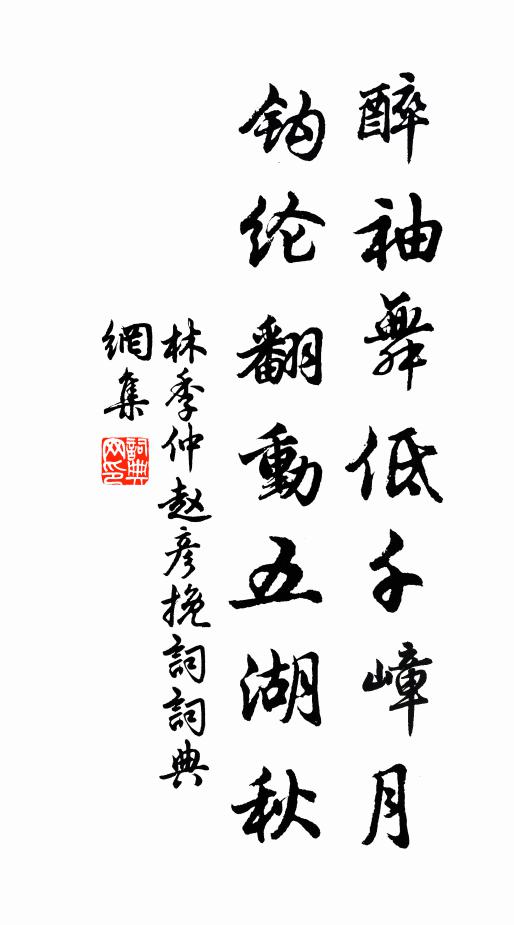 醉袖舞低千嶂月
钩纶翻動五湖秋
林季仲赵彦挽詞詞典
網集
詞典网印